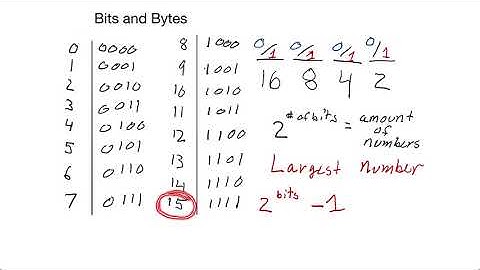 Bits and Bytes
0 0000 8 1000 0/1 0/1 0/1 0/1
1 0001 9 1001 16 8 4 2
2 0010 10 1010
3 0011 11 1011 2 # of bits = amount of numbers
4 0100 12 1100
5 0101 13 1101 Largest Number
6 0110 14 1110
7 0111 15 1111 2 bits -1